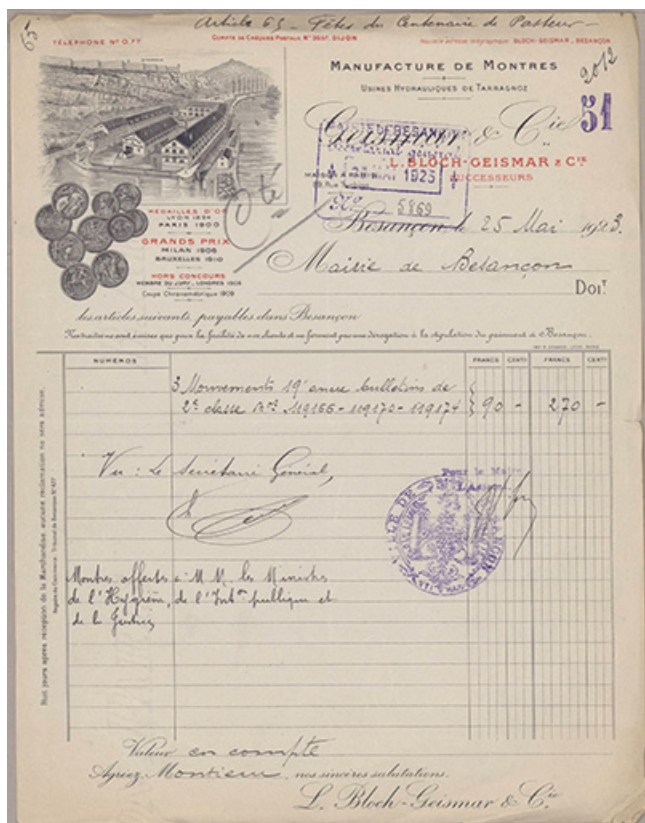 65
Article 65 - Fêtes du Centenaire de Pasteur -
TÉLÉPHONE Nº 0.77
COMPTE DE CHÈQUES POSTAUX Nº 3657. DIJON
BLOCH-GEISMAR, BESANÇON
2012
MANUFACTURE DE MONTRES
USINES HYDRAULIQUES DE TARRAGNOZ
51
Geismar & Cie
MAIRIE DE BESANÇON
L. BLOCH-GEISMAR & CIE
SUCCESSEURS
MAISON À PARIS
1923
Nº 5869
MÉDAILLES D'OR
LYON 1894
PARIS 1900
GRANDS PRIX
MILAN 1906
BRUXELLES 1910
HORS CONCOURS
MEMBRE DU JURY, LONDRES 1908
Coupe Chronométrique 1908
Besançon, le 25 Mai 1923.
Mairie de Besançon
DOIT
les articles suivants, payables dans Besançon
Nos traites ne sont émises que pour la facilité de nos clients et ne forment pas une dérogation à la stipulation du paiement à Besançon.
NUMÉROS
FRANCS
CENT
FRANCS
CENT
3 Mouvements 19' ancre bulletins de
2e classe Nos 119166 - 119170 - 119174
90 -
270 -
Vu : Le Secrétaire Général,
Pour le Maire
VILLE DE BESANÇON
Montres offertes à M.M. les Ministres
de l'Hygiène, de l'Inston publique et
de la Justice
Huit jours après réception de la Marchandise aucune réclamation ne sera admise.
Valeur en compte
Agréez, Monsieur, nos sincères salutations.
L. Bloch-Geismar & Cie